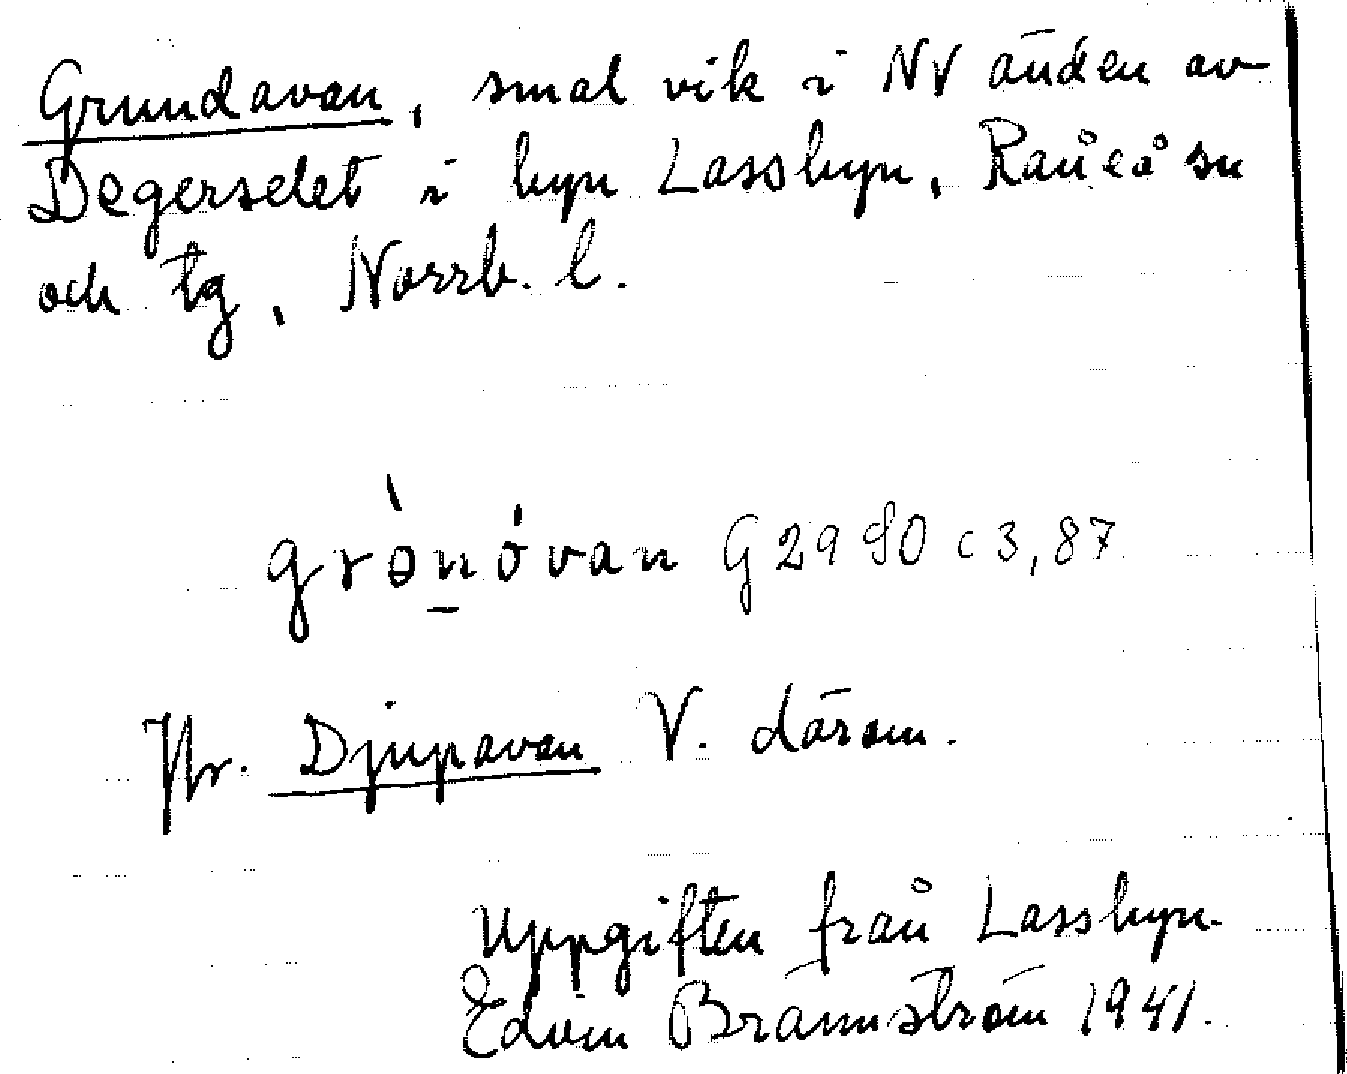 Grundavan, smal vik i NV änden av
Degerselet i byn Lassbyn, Råneå sn
och tg, Norrb. l.
grònóvan G 2980 c 3, 87
Jfr. Djupavan V. därom.
Uppgiften från Lassbyn.
Edvin Brännström 1941.